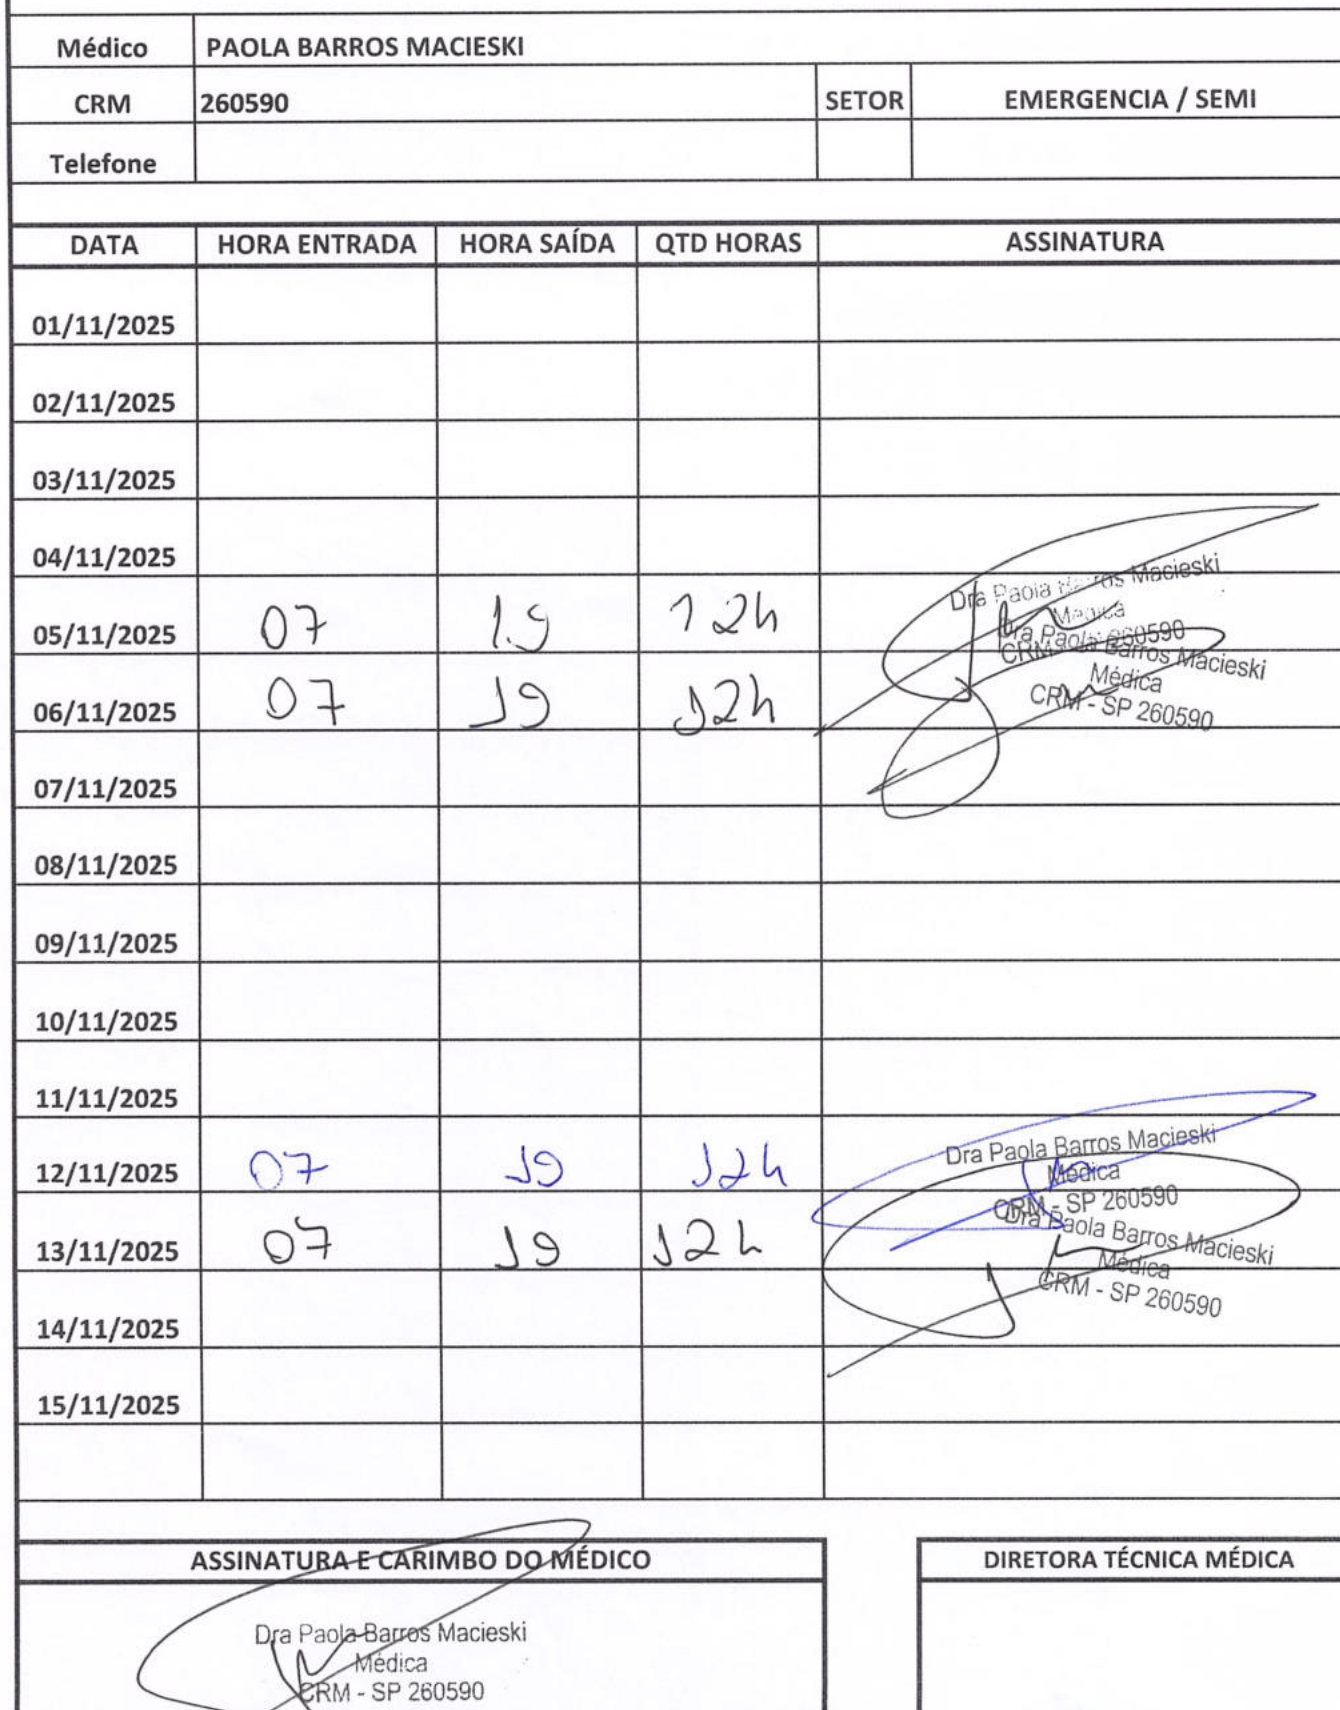 Médico PAOLA BARROS MACIESKI
CRM 260590 SETOR EMERGENCIA / SEMI
Telefone
DATA HORA ENTRADA HORA SAÍDA QTD HORAS ASSINATURA
01/11/2025
02/11/2025
03/11/2025
04/11/2025
05/11/2025 07 19 12h
Dra Paola Barros Macieski
Médica
CRM 260590
06/11/2025 07 19 12h
Dra Paola Barros Macieski
Médica
CRM - SP 260590
07/11/2025
08/11/2025
09/11/2025
10/11/2025
11/11/2025
12/11/2025 07 19 12h
Dra Paola Barros Macieski
Médica
CRM - SP 260590
13/11/2025 07 19 12h
Dra Paola Barros Macieski
Médica
CRM - SP 260590
14/11/2025
15/11/2025
ASSINATURA E CARIMBO DO MÉDICO DIRETORA TÉCNICA MÉDICA
Dra Paola Barros Macieski
Médica
CRM - SP 260590